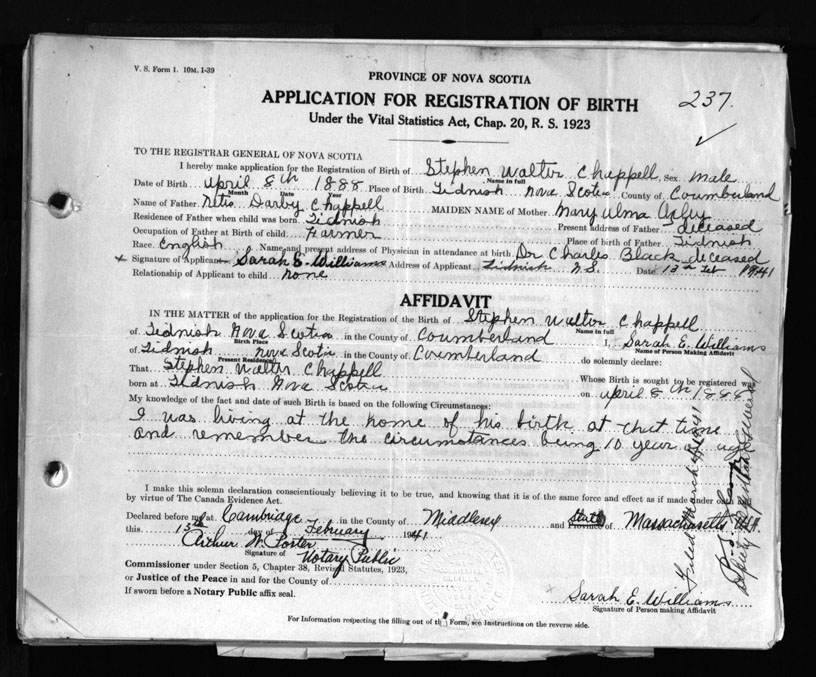 V. S. Form 1. 10M. 1-39
PROVINCE OF NOVA SCOTIA
APPLICATION FOR REGISTRATION OF BIRTH
237.
Under the Vital Statistics Act, Chap. 20, R. S. 1923
TO THE REGISTRAR GENERAL OF NOVA SCOTIA
I hereby make application for the Registration of Birth of Stephen Walter Chappell Sex male
Name in full
Date of Birth April 8th 1888 Place of Birth Tidnish Nova Scotia County of Coumberland
Month Date Year
Name of Father Darby Chappell MAIDEN NAME of Mother Mary Ulma
Residence of Father when child was born Tidnish Present address of Father deceased
Occupation of Father at Birth of child Farmer Place of birth of Father Tidnish
Race English Name and present address of Physician in attendance at birth Dr Charles Black deceased
Signature of Applicant Sarah E. Williams Address of Applicant Tidnish N.S. Date 13th 1941
Relationship of Applicant to child none
AFFIDAVIT
IN THE MATTER of the application for the Registration of the Birth of Stephen Walter Chappell
Name in full
of Tidnish Nova Scotia in the County of Coumberland I, Sarah E. Williams
Birth Place Name of Person Making Affidavit
of Tidnish Nova Scotia in the County of Coumberland do solemnly declare:
Present Residence
That Stephen Walter Chappell Whose Birth is sought to be registered was
born at Tidnish Nova Scotia on April 8th 1888
My knowledge of the fact and date of such Birth is based on the following Circumstances:
I was living at the home of his birth at that time
and remember the circumstances being 10 years of age
I make this solemn declaration conscientiously believing it to be true, and knowing that it is of the same force and effect as if made under oath and
by virtue of The Canada Evidence Act.
Declared before me at Cambridge in the County of Middlesex and State Province of Massachusetts
this 13th day of February 1941
Arthur Porter
Signature of Notary Public
Commissioner under Section 5, Chapter 38, Revised Statutes, 1923,
or Justice of the Peace in and for the County of
If sworn before a Notary Public affix seal.
Sarah E. Williams
Signature of Person making Affidavit
For Information respecting the filling out of this Form, see Instructions on the reverse side.
Filed March 1941
Deputy Registrar General